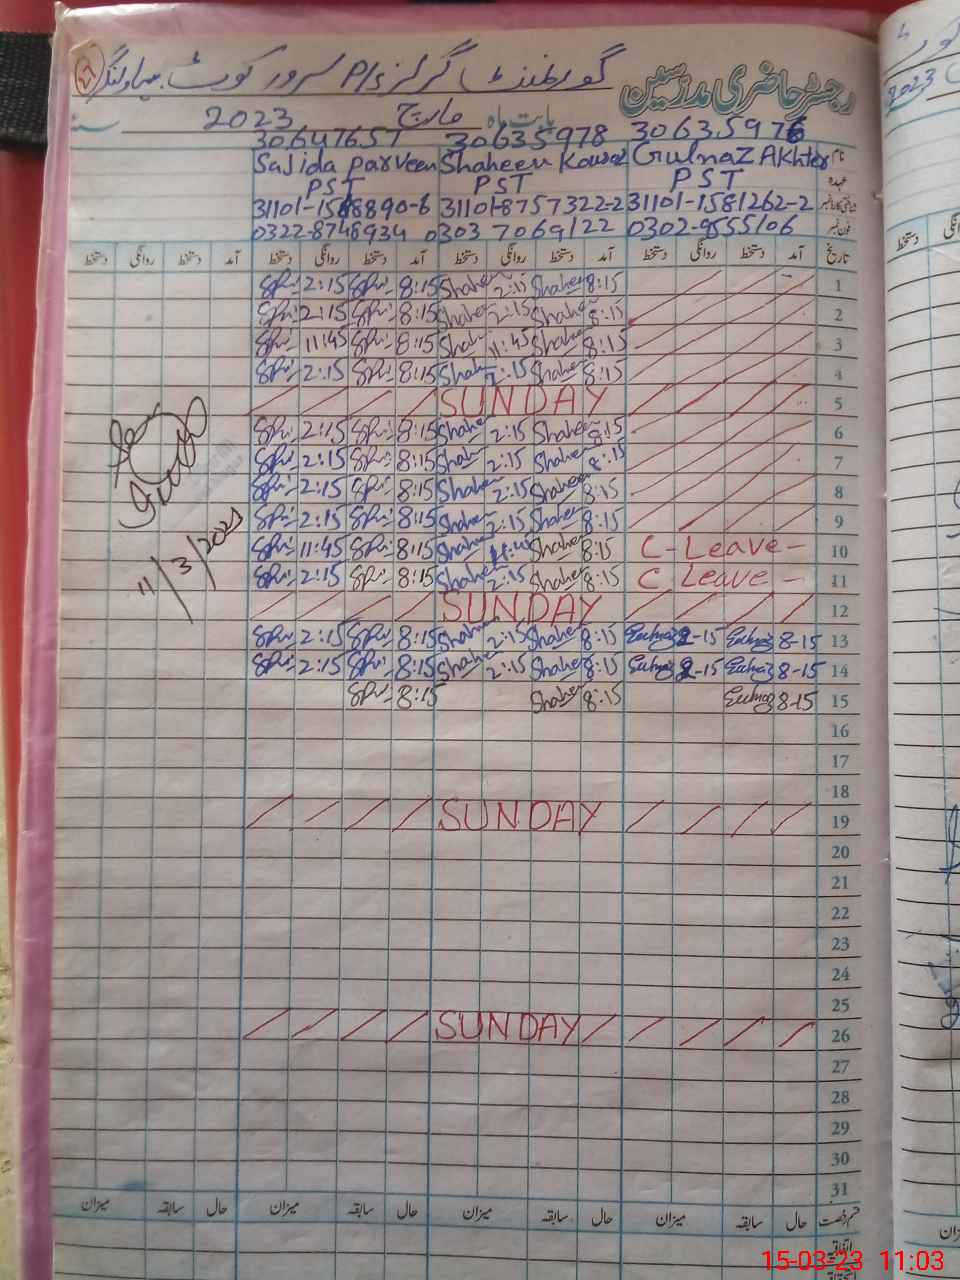 گورنمنٹ گرلز P/s سرور کوٹ۔
رجسٹر حاضری مدرسین
بابت ماہ مارچ 2023
30647657 30635978 30635976
نام Sajida Parveen Shaheen Kawsar Gulnaz Akhter
عہدہ PST PST PST
31101-8757322-2 31101-1581262-2
فون نمبر 0322-8748934 0303 7069122 0302-9555106
تاریخ آمد دستخط روانگی دستخط آمد دستخط روانگی دستخط آمد دستخط روانگی دستخط آمد دستخط روانگی دستخط
2:15 8:15 Shaheen 2:15 Shaheen 8:15 1
2:15 8:15 Shaheen 2:15 Shaheen 8:15 2
11:45 8:15 Shaheen 11:45 Shaheen 8:15 3
2:15 8:15 Shaheen 2:15 Shaheen 8:15 4
SUNDAY 5
2:15 8:15 Shaheen 2:15 Shaheen 8:15 6
2:15 8:15 Shaheen 2:15 Shaheen 8:15 7
2:15 8:15 Shaheen 2:15 Shaheen 8:15 8
2:15 8:15 Shaheen 2:15 Shaheen 8:15 9
11:45 8:15 Shaheen 11:45 Shaheen 8:15 C-Leave- 10
2:15 8:15 Shaheen 2:15 Shaheen 8:15 C Leave - 11
SUNDAY 12
2:15 8:15 Shaheen 2:15 Shaheen 8:15 Gulnaz 2-15 Gulnaz 8-15 13
2:15 8:15 Shaheen 2:15 Shaheen 8:15 Gulnaz 2-15 Gulnaz 8-15 14
8:15 Shaheen 8:15 Gulnaz 8-15 15
16
17
18
SUNDAY 19
20
21
22
23
24
25
SUNDAY 26
27
28
29
30
31
قسم رخصت حال سابقہ میزان حال سابقہ میزان حال سابقہ میزان حال سابقہ میزان
اتفاقیہ
11/3/2023
2023
15-03-23 11:03